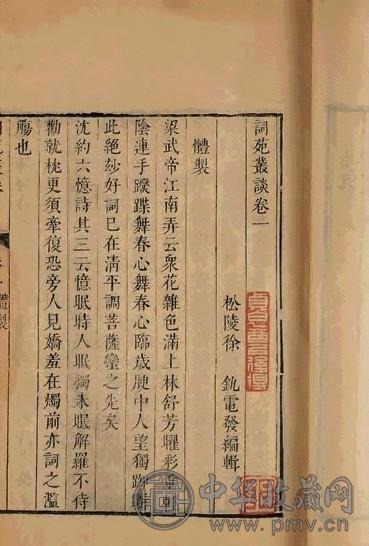 詞苑叢談卷一
松陵徐 釚電發編輯
體製
梁武帝江南弄云衆花雜色滿上林舒芳曜彩
陰連手蹀躞舞春心舞春心臨歲腴中人望獨踟
此絕妙好詞已在清平調菩薩蠻之先矣
沈約六憶詩其三云憶眠時人眠獨未眠解羅不待
勸就枕更須牽復恐旁人見嬌羞在燭前亦詞之濫
觴也
體製
中华收藏网
www.pmv.cn